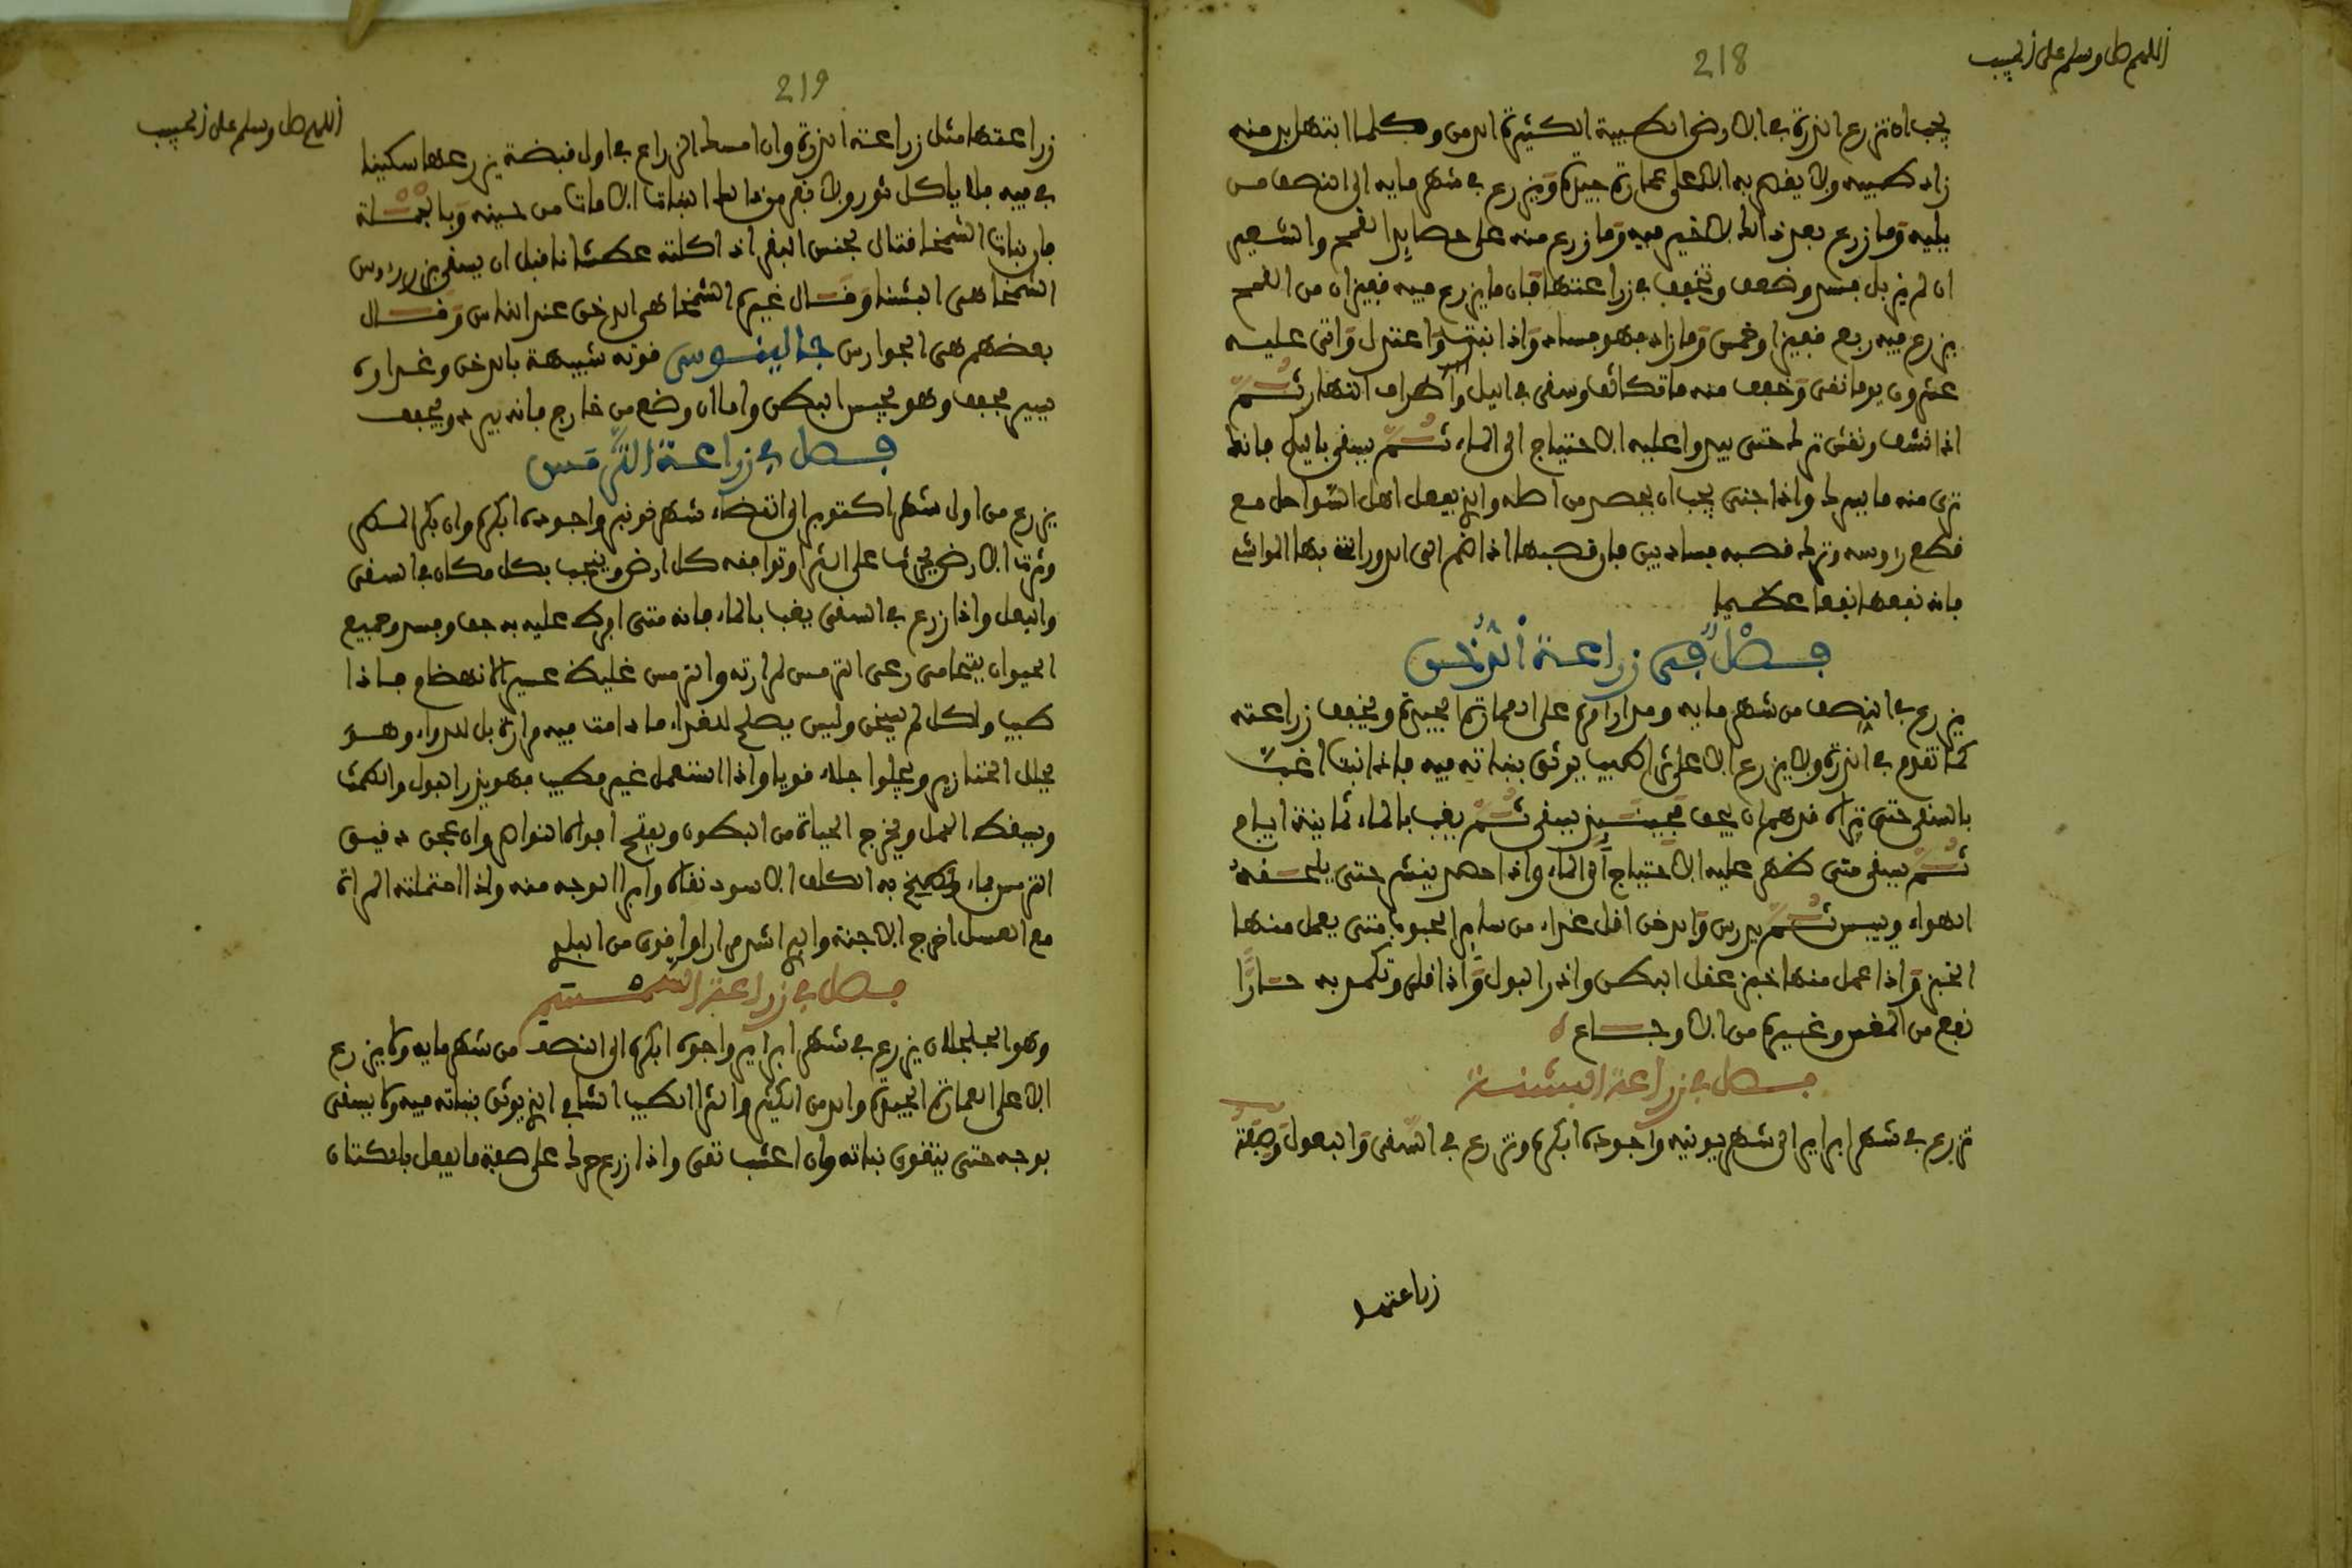 اللهم صل وسلم على الحبيب
218
يجب ان تزرع الذرة في الارض الطيبة الكثيرة الدمن وكلما انتهل بدمنه
زاد طيبه ولا يقدم به الا على عمارة جيدة ويزرع في شهر مايه الى النصف من
يليه وما زرع بعد ذالك لا خير فيه وما زرع منه على حصايد القمح والشعير
ان لم يزبل فسد وضعف وتخفف في زراعتها فان ما يزرع فيه قفيزان من القمح
يزرع فيه ربع قفيز او خمس وما زاد فهو فساد واذا نبت واعتدل واتى عليه
عشرون يوما نقي وخفف منه ما تكاثف وسقي في اليل او اطراف النهار ثم
اذا نشف ونقش ترك حتى يبدوا عليه الاحتياج الى الماء ثم يسقى باليل فانك
ترى منه ما يسرك واذا جنى يجب ان يحصد من اصله والذي يفعل اهل السواحل مع
قطع راوسه وترك قصبه فساد بين فان قصبها اذا ضم الى الدور انتفع بها المواشي
فانه نفعها نفعا عظيما
فصل في زراعة الدخن
يزرع في النصف من شهر مايه ومدار امره على العمارة الجيدة ويخفف زراعته
كما تقدم في الذرة ولا يزرع الا على ثرا طيب يوثق بنباته فيه فاذا نبت اغب
بالسقي حتى تراه قد هم ان يجف فحينئذ يسقى ثم يغب بالماء ثمانية ايام
ثم يسقى متى ظهر عليه الاحتياج الى الماء واذا حصد ينشر حتى يلحقه
الهواء وييبس ثم يدرس والدخن اقل غذاء من ساير الحبوب متى يعمل منها
الخبز واذا عمل منها خبز عقل البطن وادر البول واذا قلي وتكمد به حارا
نفع من المغس وغيره من الاوجاع
فصل في زراعة البشنة
تزرع في شهر ابرير الى شهر يونيه واجوده ابكره وتزرع في السقى والبعول وصفة
زراعتها
اللهم صل وسلم على الحبيب
219
زراعتها مثل زراعة الذرة وان امسك الزراع في اول قبضة يزرعها سكينا
في فيه فلا ياكل ثور ولا بقر من ذالك النبات الا مات من حينه وبالجملة
فان نبات الشمخا قتال لجنس البقر اذا اكلته عطشانا قبل ان يسقى بن رءوس
الشمخا هي البشنا وقال غيره الشمخا هي الدخن عند الناس وقال
بعضهم هي الجوارس جالينوس قوته شبيهة بالدخن وغداوه
يسير مجفف وهو يحبس البطن واما ان وضع من خارج فانه يبرد ويجفف
فصل في زراعة الترمس
يزرع من اول شهر اكتوبر الى انقضاء شهر نونبر واجوده ابكره وان بكر المطر
وثرت الارض يحرث على الثرا وتوافقه كل ارض وينجب بكل مكان في السقى
والبعل واذا زرع في السقى يغب بالماء فانه متى افرط عليه به جف وفسد وجميع
الحيوان يتحامى رعي الترمس لمرارته والترمس غليظ عسير الانهضام فاذا
طيب واكل لم يسخن وليس يصلح للغذاء ما دامت فيه مرارة بل للدواء وهو
يحلل الخنازير ويجلوا جلاء قويا واذا استعمل غير مطيب فهو يدر البول والطمث
ويسقط الحمل ويخرج الحياة من البطون ويفتح افواه النواصر وان عجن دقيق
الترمس بماء ولطخ به الكلف الاسود نقاه وابرا الوجه منه واذا احتملته المراة
مع العسل اخرج الاجنة والبرا اشد مرارا واقوى من البلد
فصل في زراعة السمسم
وهو الجلجلان يزرع في شهر ابرير واجوده ابكره الى النصف من شهر مايه ولا يزرع
الا على العمارة الجيدة والدمن الكثير والثرا الطيب الشافي الذي يوثق بنباته فيه ولا يسقى
بوجه حتى يتقوى نباته وان اعشب نقي واذا زرع حرك على صفة ما يفعل بالكتان